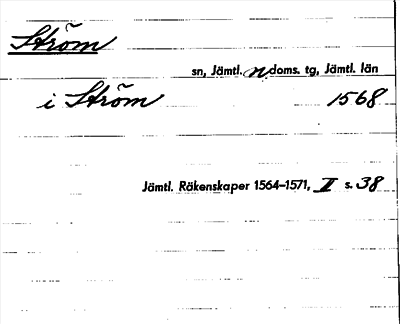 Ström
sn, Jämtl. n doms. tg, Jämtl. län
i Ström 1568
Jämtl. Räkenskaper 1564–1571, II s. 38